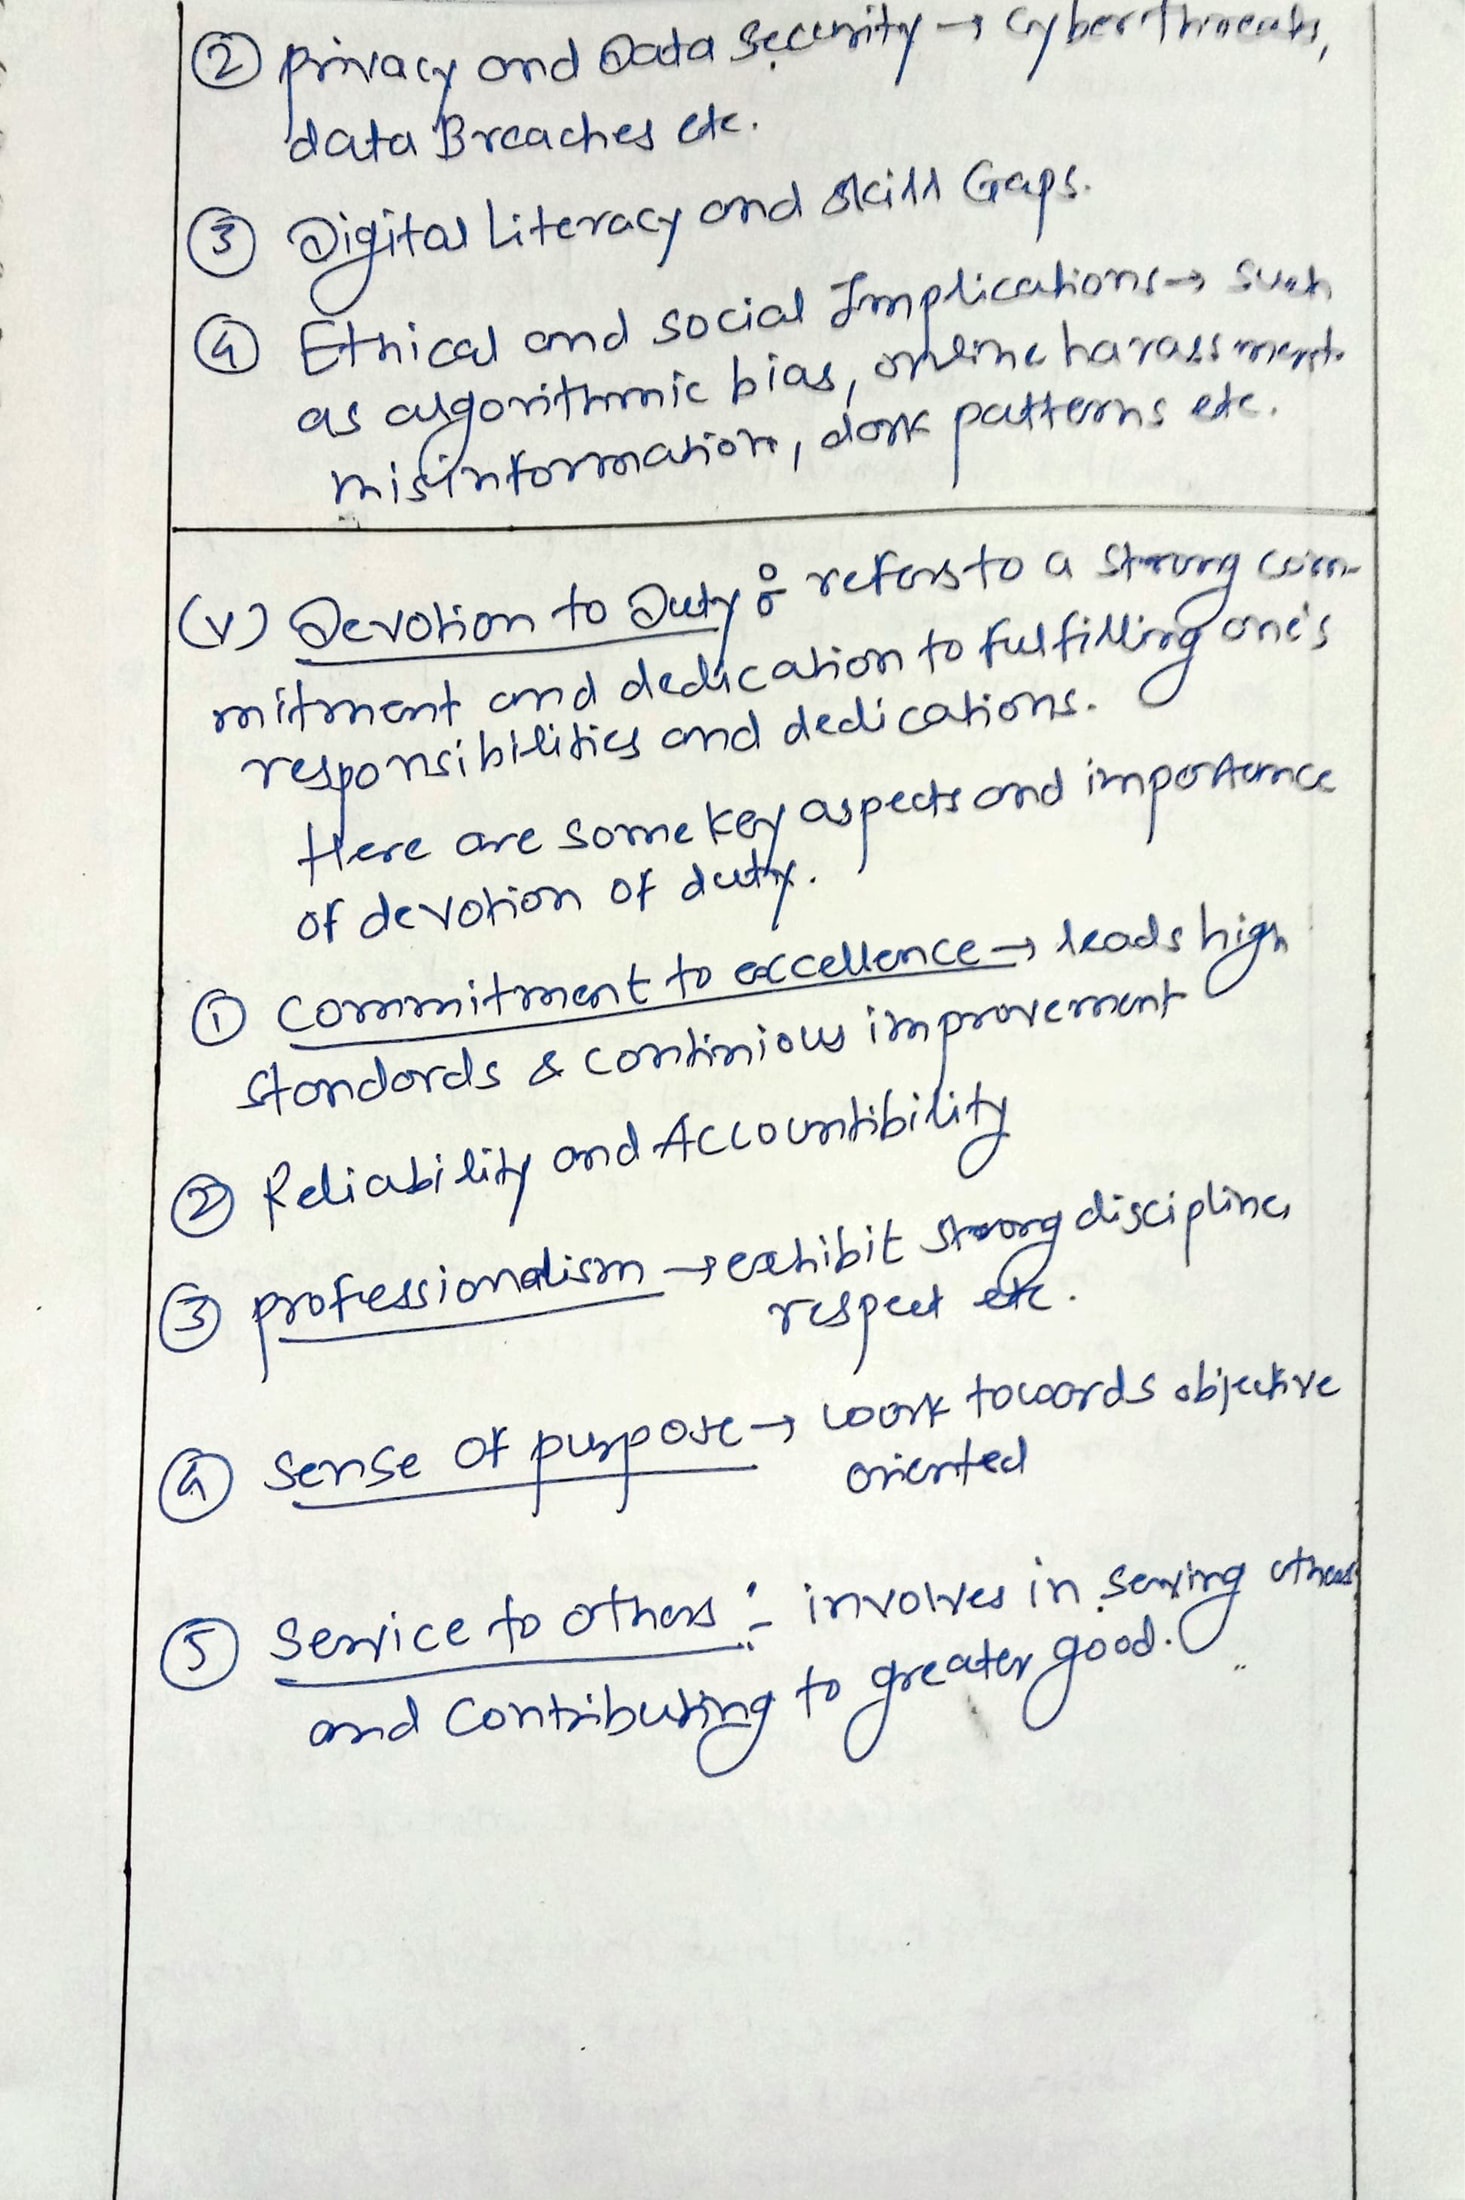 ② Privacy and Data Security → Cyber threats,
data Breaches etc.
③ Digital Literacy and Skill Gaps.
④ Ethical and social Implications → Such
as algorithmic bias, online harassment
misinformation, dark patterns etc.
(v) Devotion to Duty : refers to a strong com-
mitment and dedication to fulfilling one's
responsibilities and dedications.
Here are some key aspects and importance
of devotion of duty.
① Commitment to excellence → leads high
standards & continious improvement
② Reliability and Accountibility
③ professionalism → exhibit strong discipline,
respect etc.
④ Sense of purpose → work towards objective
oriented
⑤ Service to others :- involves in serving others
and Contributing to greater good.